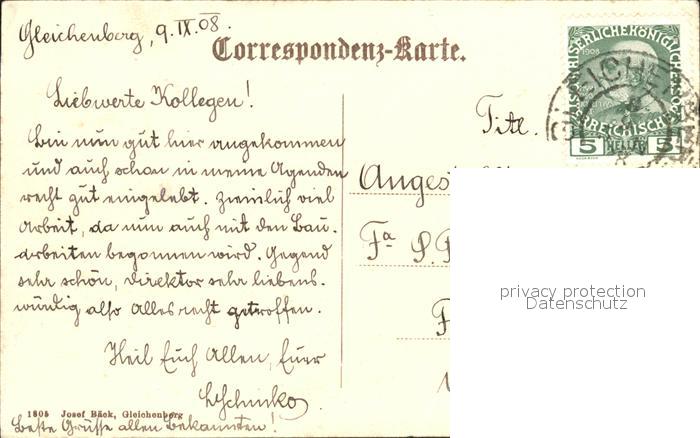 Gleichenberg, 9.IX.08.
Correspondenz-Karte.
Liebwerte Kollegen!
Bin nun gut hier angekommen
und auch schon in meine Agenden
recht gut eingelebt. Ziemlich viel
Arbeit, da nun auch mit den Bau-
arbeiten begonnen wird. Gegend
sehr schön, Direktor sehr liebens-
würdig also Alles recht getroffen.
Heil Euch Allen, Euer
1805 Josef Bäck, Gleichenberg
Beste Grüsse allen Bekannten!
Titl.
Anges
Fa S.
5 HELLER 5
1908
privacy protection
Datenschutz